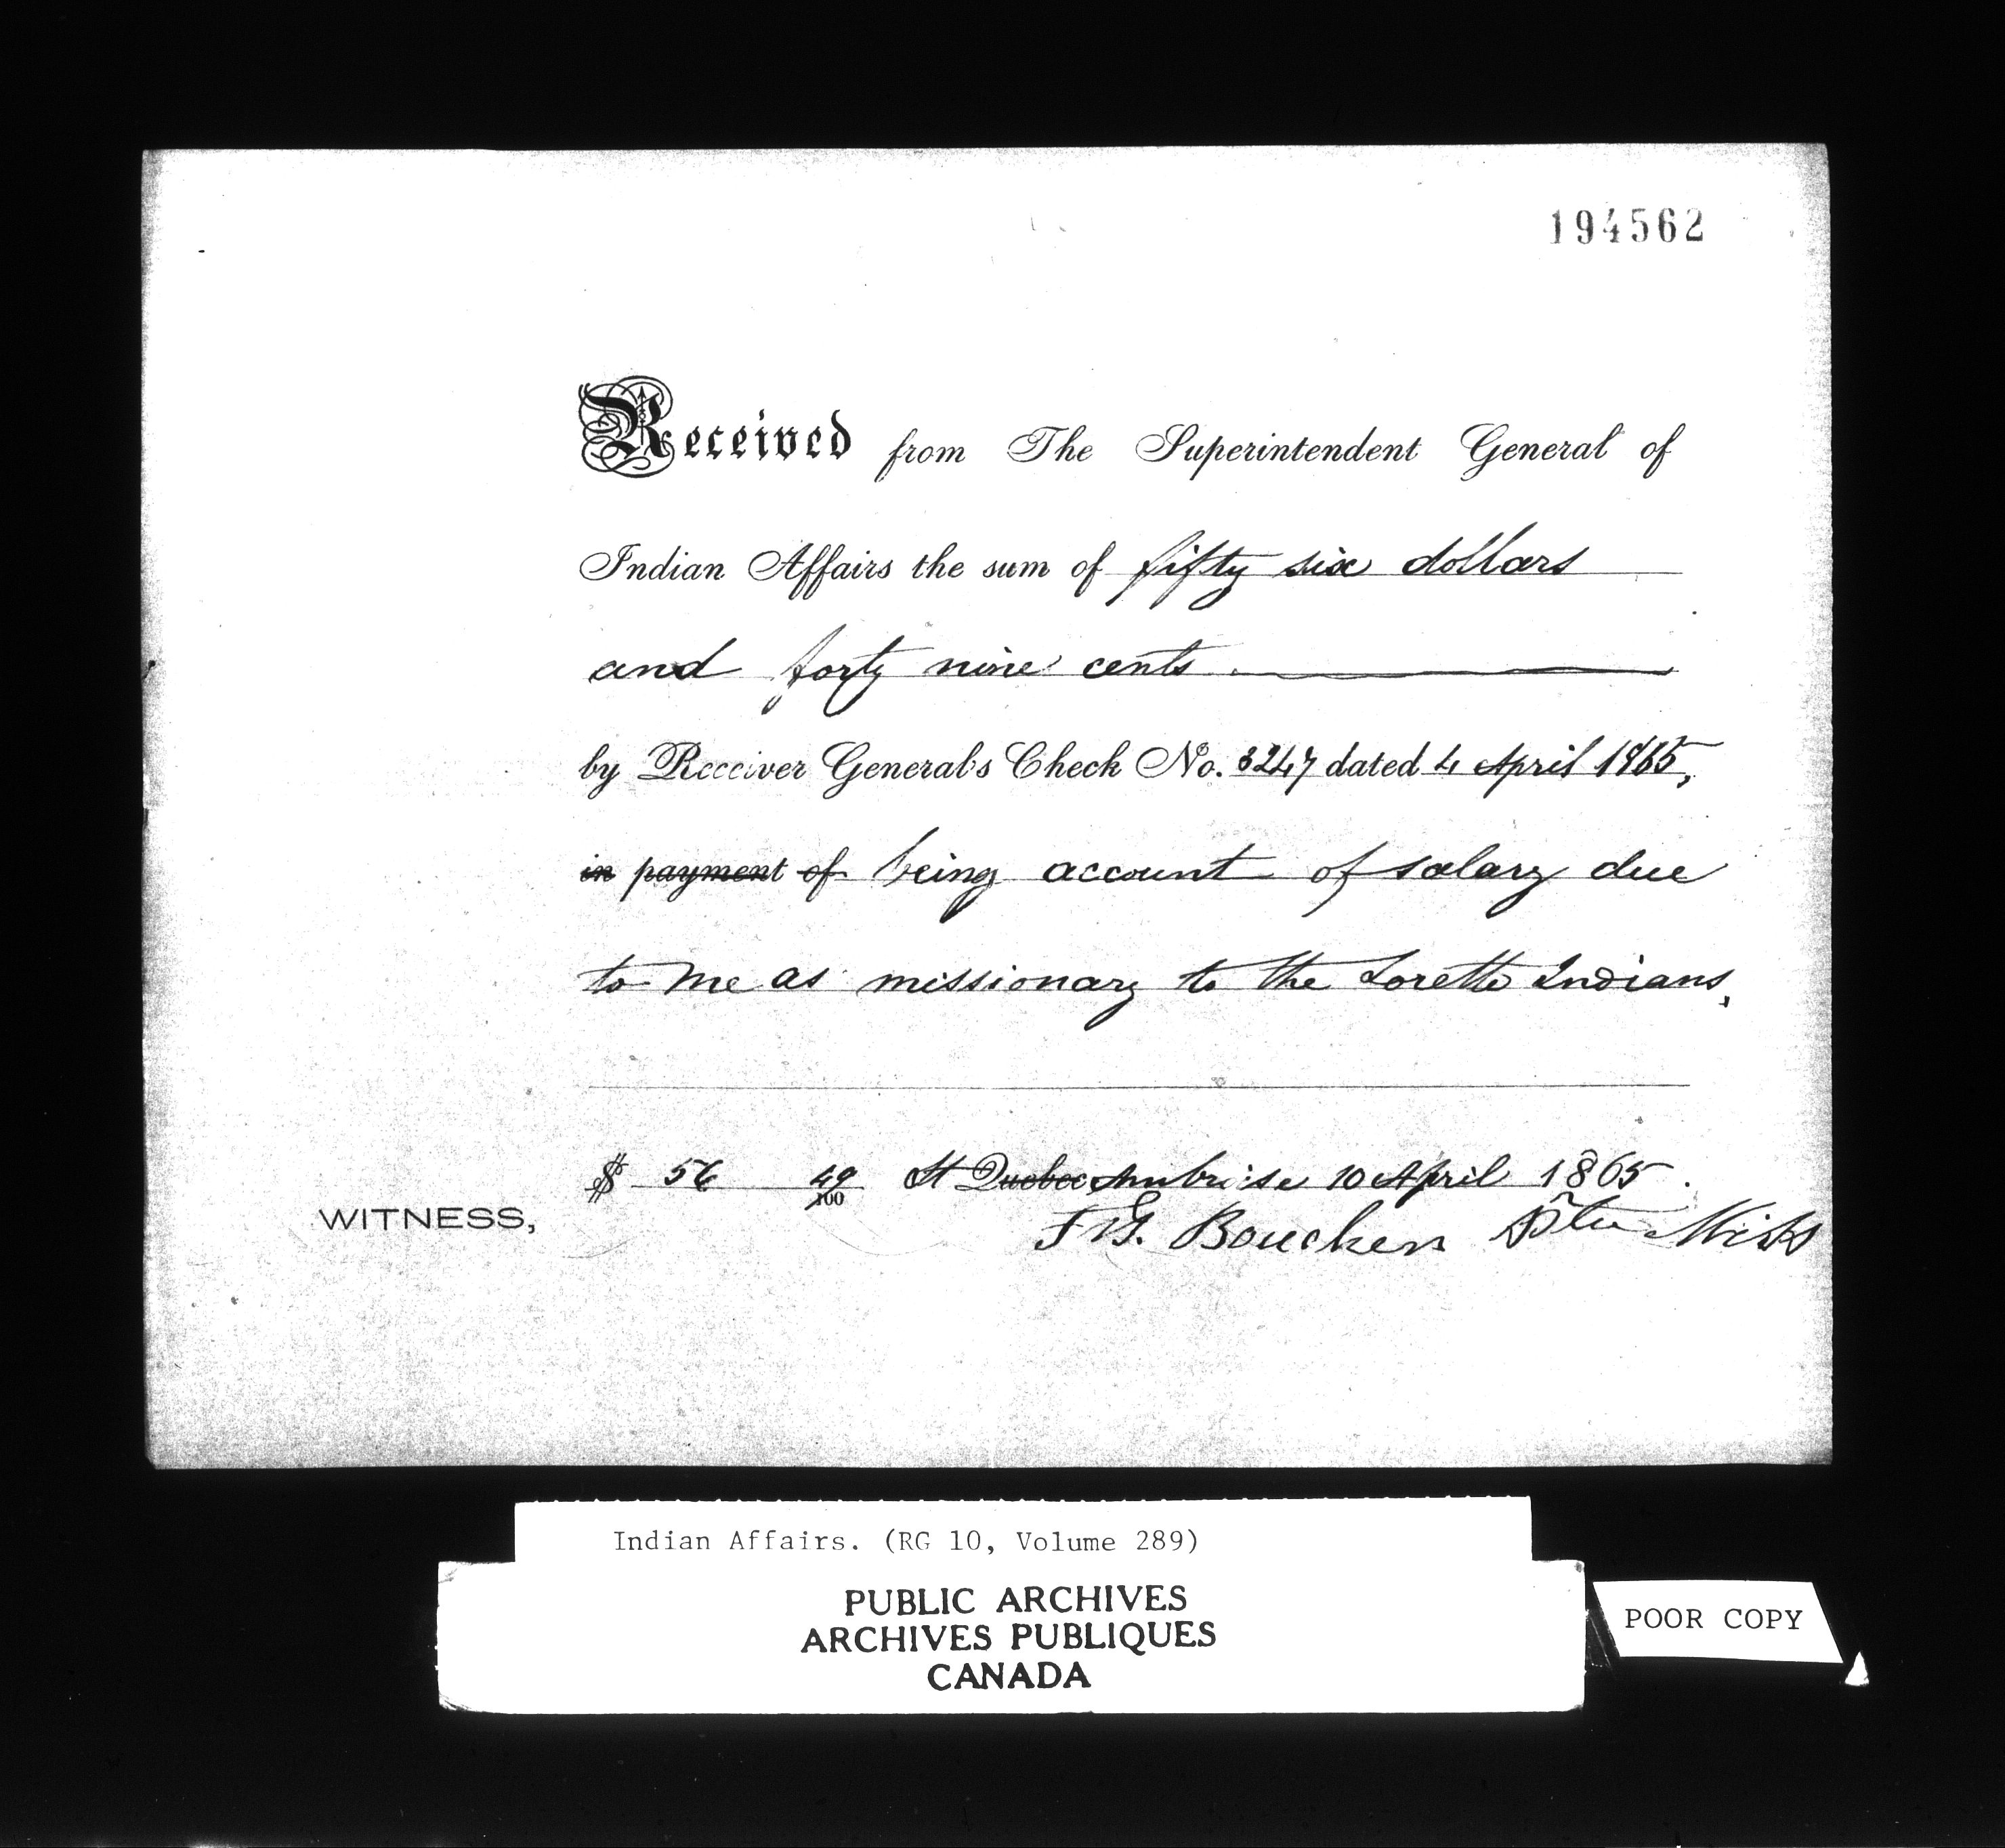 194562
Received from The Superintendent General of
Indian Affairs the sum of fifty six dollars
and forty nine cents
by Receiver General's Check No. 3247 dated 4 April 1865,
in payment of being account of salary due
to me as missionary to the Lorette Indians,
$ 56 49/100 St Quebec Ambroise 10 April 1865.
WITNESS,
F. Boucher Ptre Miss
Indian Affairs. (RG 10, Volume 289)
PUBLIC ARCHIVES
ARCHIVES PUBLIQUES
CANADA
POOR COPY